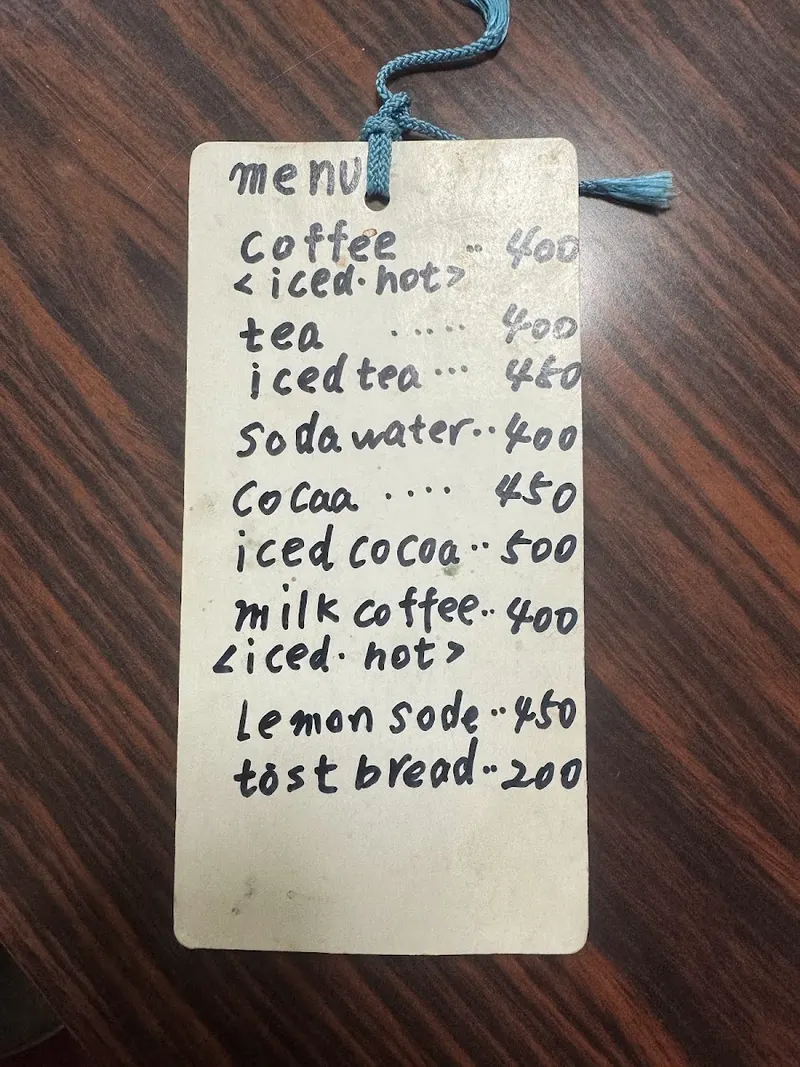 menu
coffee .. 400
<iced・hot>
tea ..... 400
iced tea ... 450
soda water.. 400
cocaa .... 450
iced cocoa .. 500
milk coffee.. 400
<iced・hot>
Lemon sode .. 450
tost bread .. 200